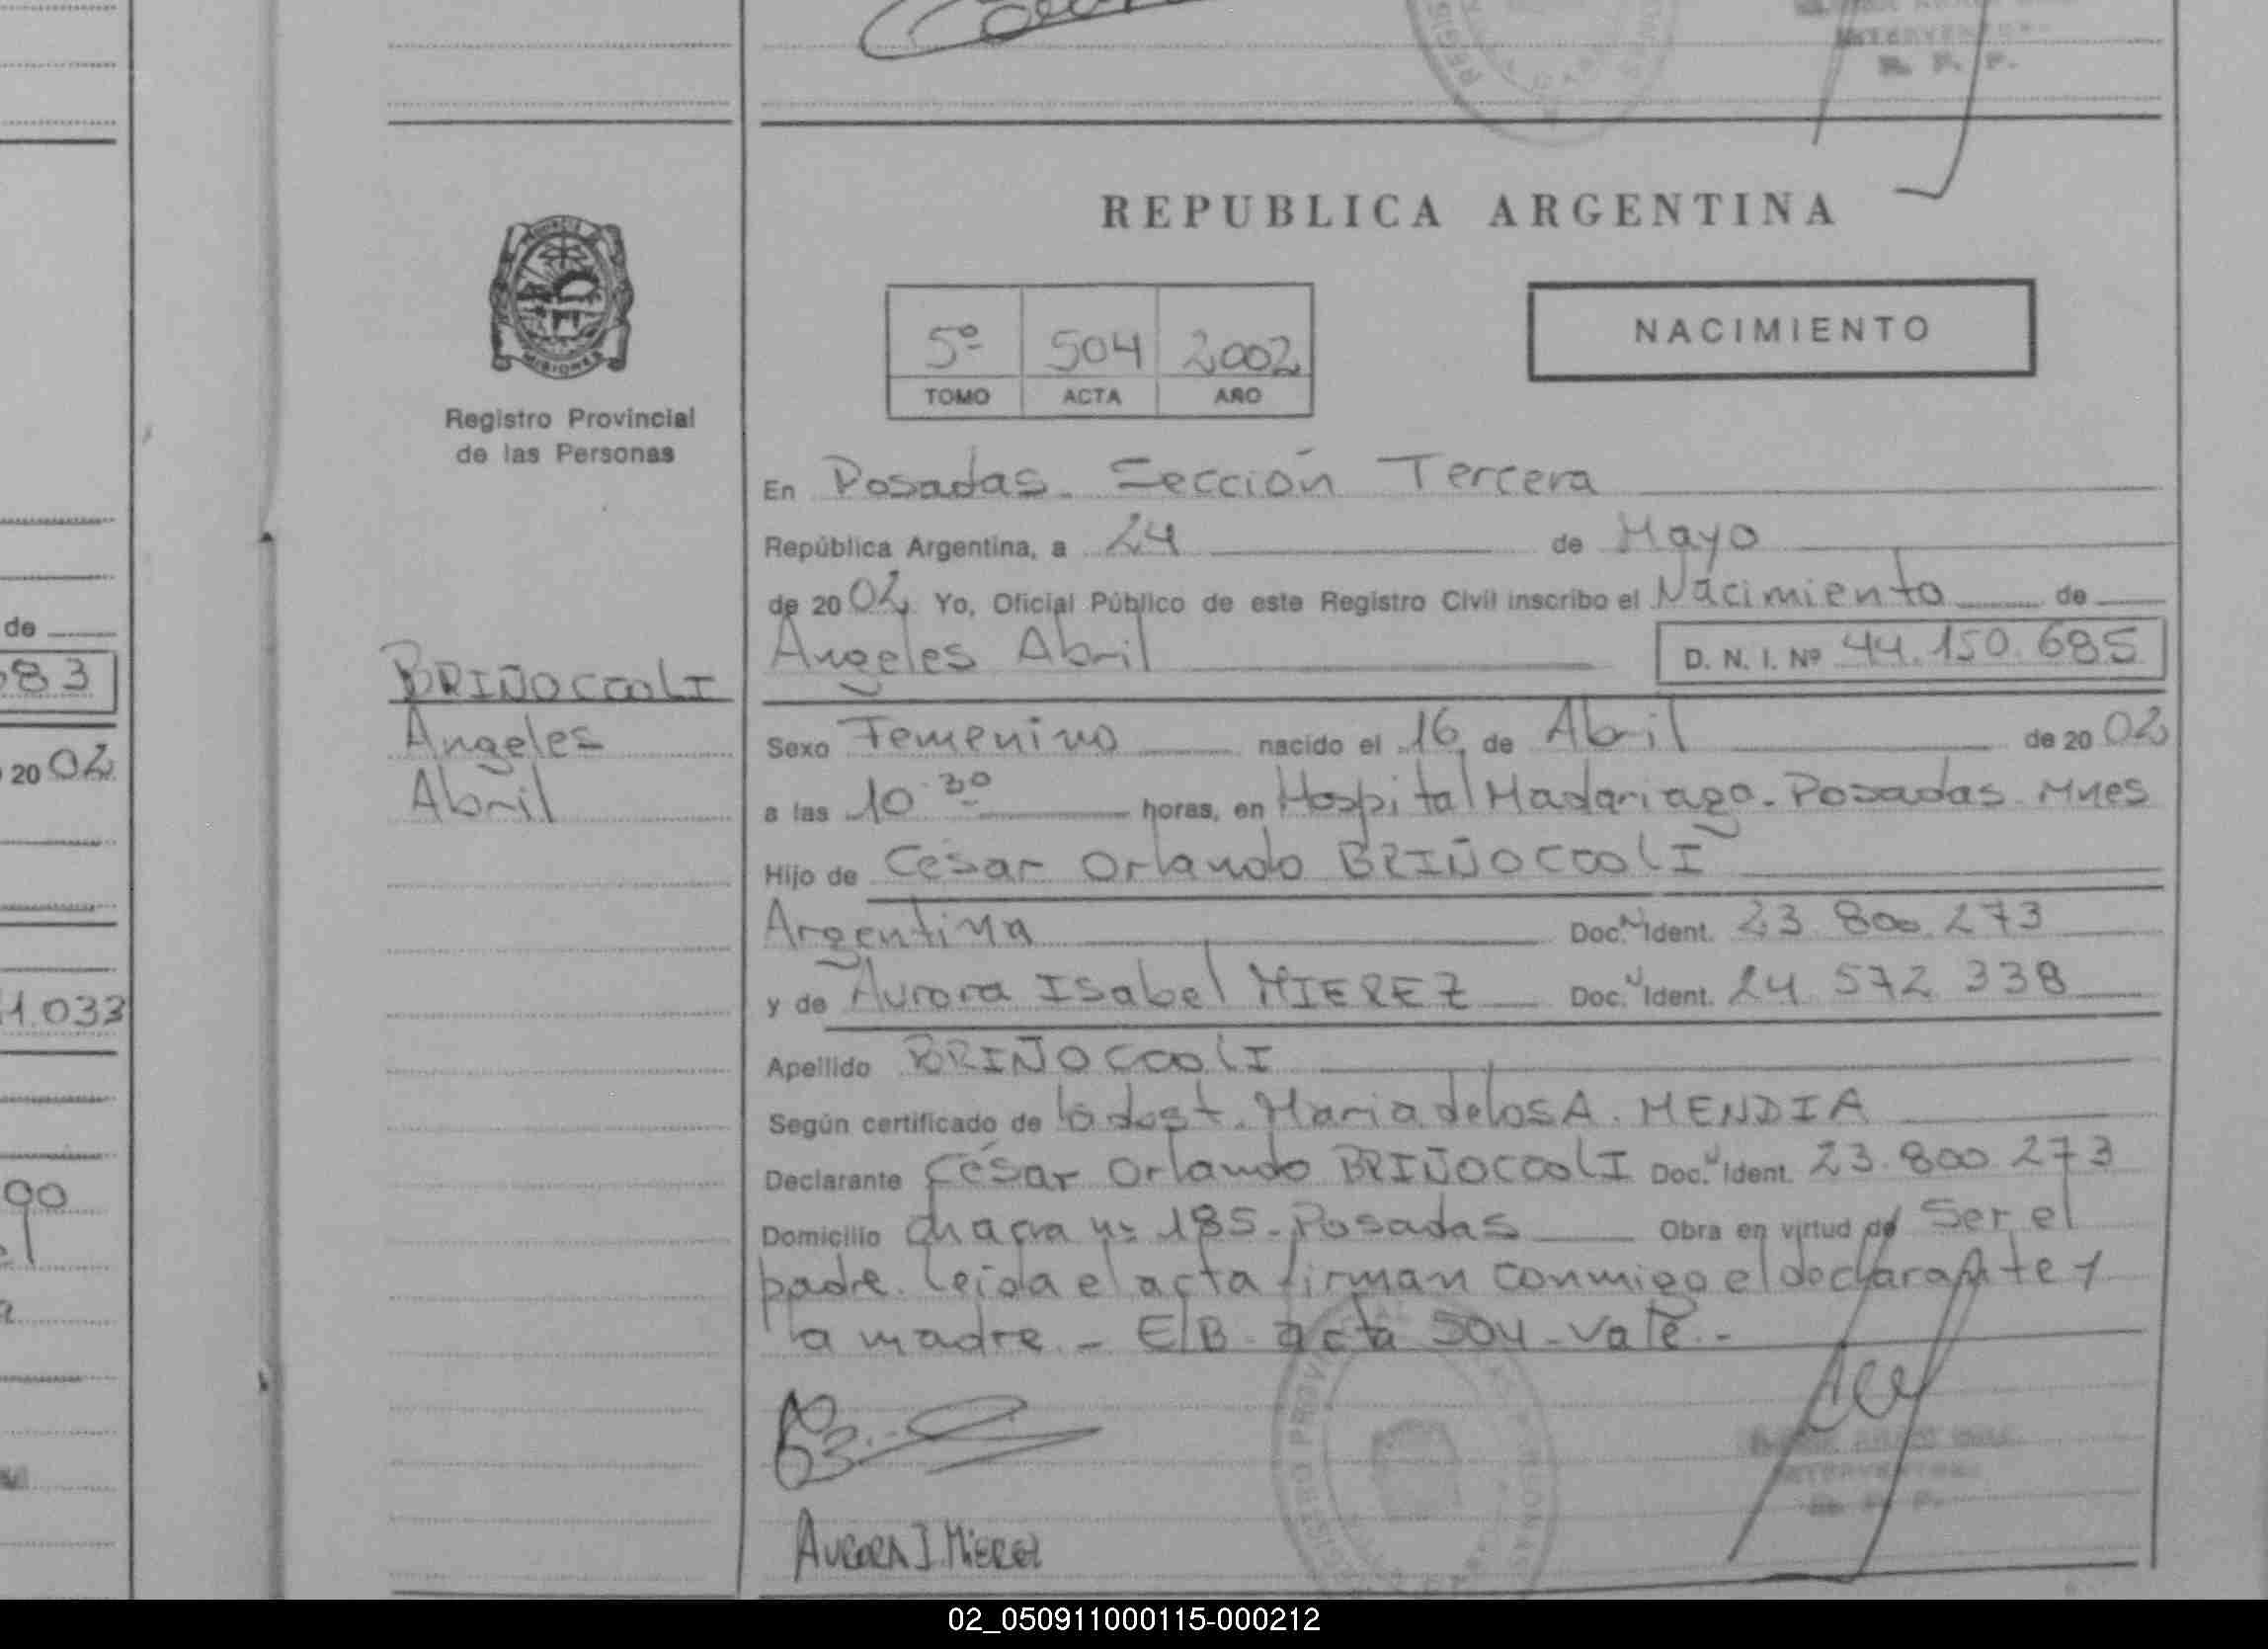 REPUBLICA ARGENTINA
NACIMIENTO
5º 504 2002
TOMO ACTA AÑO
Registro Provincial
de las Personas
En Posadas. Sección Tercera
República Argentina, a 24 de Mayo
de 2002 Yo, Oficial Público de este Registro Civil inscribo el Nacimiento de
Angeles Abril D. N. I. Nº 44.150.685
BRIÑOCCOLI
Angeles
Abril
Sexo Femenino nacido el 16 de Abril de 2002
a las 10.30 horas, en Hospital Madariaga. Posadas. Mnes
Hijo de César Orlando BRIÑOCCOLI
Argentina Doc. Ident. 23.800.273
y de Aurora Isabel MIEREZ Doc. Ident. 24.572.338
Apellido BRIÑOCCOLI
Según certificado de la obst. Maria de los A. MENDIA
Declarante César Orlando BRIÑOCCOLI Doc. Ident. 23.800.273
Domicilio chacra nº 185-Posadas Obra en virtud de Ser el
padre. Leída el acta firman conmigo el declarante y
la madre.- E/B. acta 504-vale.-
AURORA I. MIEREZ
de
83
2002
1.033
90
02_050911000115-000212